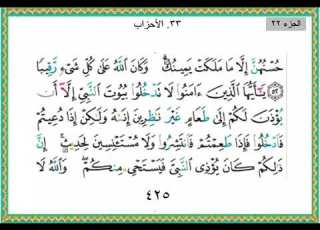 ٣٣. الأحزاب
الجزء ٢٢
حُسْنُهُنَّ إِلَّا مَا مَلَكَتْ يَمِينُكَ ۗ وَكَانَ اللَّهُ عَلَىٰ كُلِّ شَيْءٍ رَّقِيبًا
﴿٥٢﴾ يَا أَيُّهَا الَّذِينَ آمَنُوا لَا تَدْخُلُوا بُيُوتَ النَّبِيِّ إِلَّا أَن
يُؤْذَنَ لَكُمْ إِلَىٰ طَعَامٍ غَيْرَ نَاظِرِينَ إِنَاهُ وَلَٰكِنْ إِذَا دُعِيتُمْ
فَادْخُلُوا فَإِذَا طَعِمْتُمْ فَانتَشِرُوا وَلَا مُسْتَأْنِسِينَ لِحَدِيثٍ ۚ إِنَّ
ذَٰلِكُمْ كَانَ يُؤْذِي النَّبِيَّ فَيَسْتَحْيِي مِنكُمْ ۖ وَاللَّهُ لَا
٤٢٥